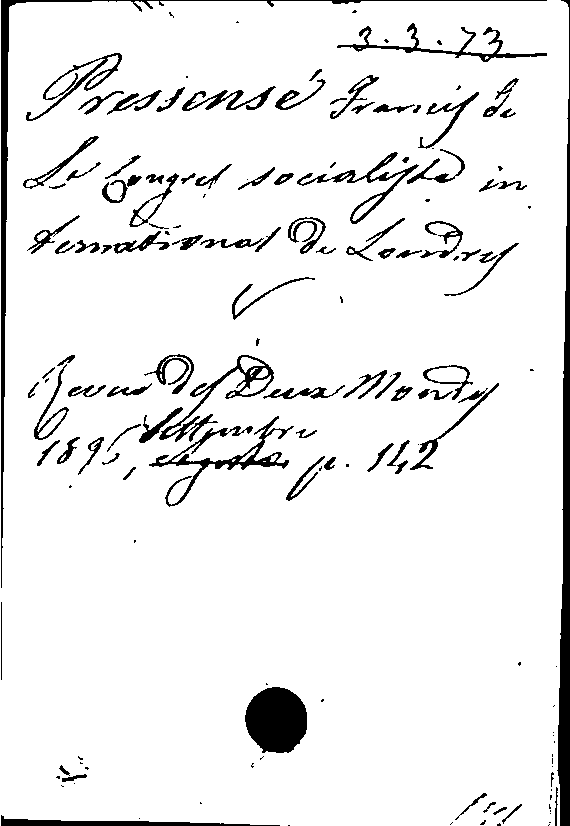 3.3.73
Pressensé Francis de
Le Congrès socialiste in
ternational de Londres
Revue des Deux Mondes
Settembre
1896, agosto p. 142